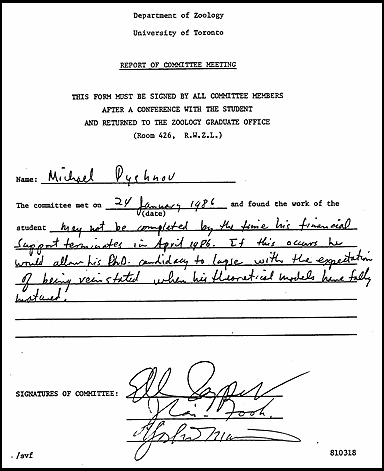 Department of Zoology
University of Toronto
REPORT OF COMMITTEE MEETING
THIS FORM MUST BE SIGNED BY ALL COMMITTEE MEMBERS
AFTER A CONFERENCE WITH THE STUDENT
AND RETURNED TO THE ZOOLOGY GRADUATE OFFICE
(Room 426, R.W.Z.L.)
Name: Michael Pyshnov
The committee met on 24 January 1986 and found the work of the
(date)
student may not be completed by the time his financial
support terminates in April 1986. If this occurs he
would allow his Ph.D. candidacy to lapse with the expectation
of being reinstated when his theoretical models have fully
matured.
SIGNATURES OF COMMITTEE:
/svf
810318